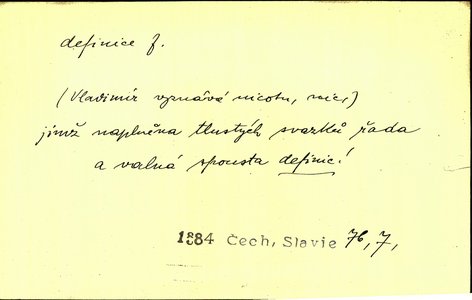 definice f.
(Vladimír vyznává nicotu, nic,)
jímž naplněna tlustých svazků řada
a valná spousta definic!
1884 Čech, Slavie 76, 7,